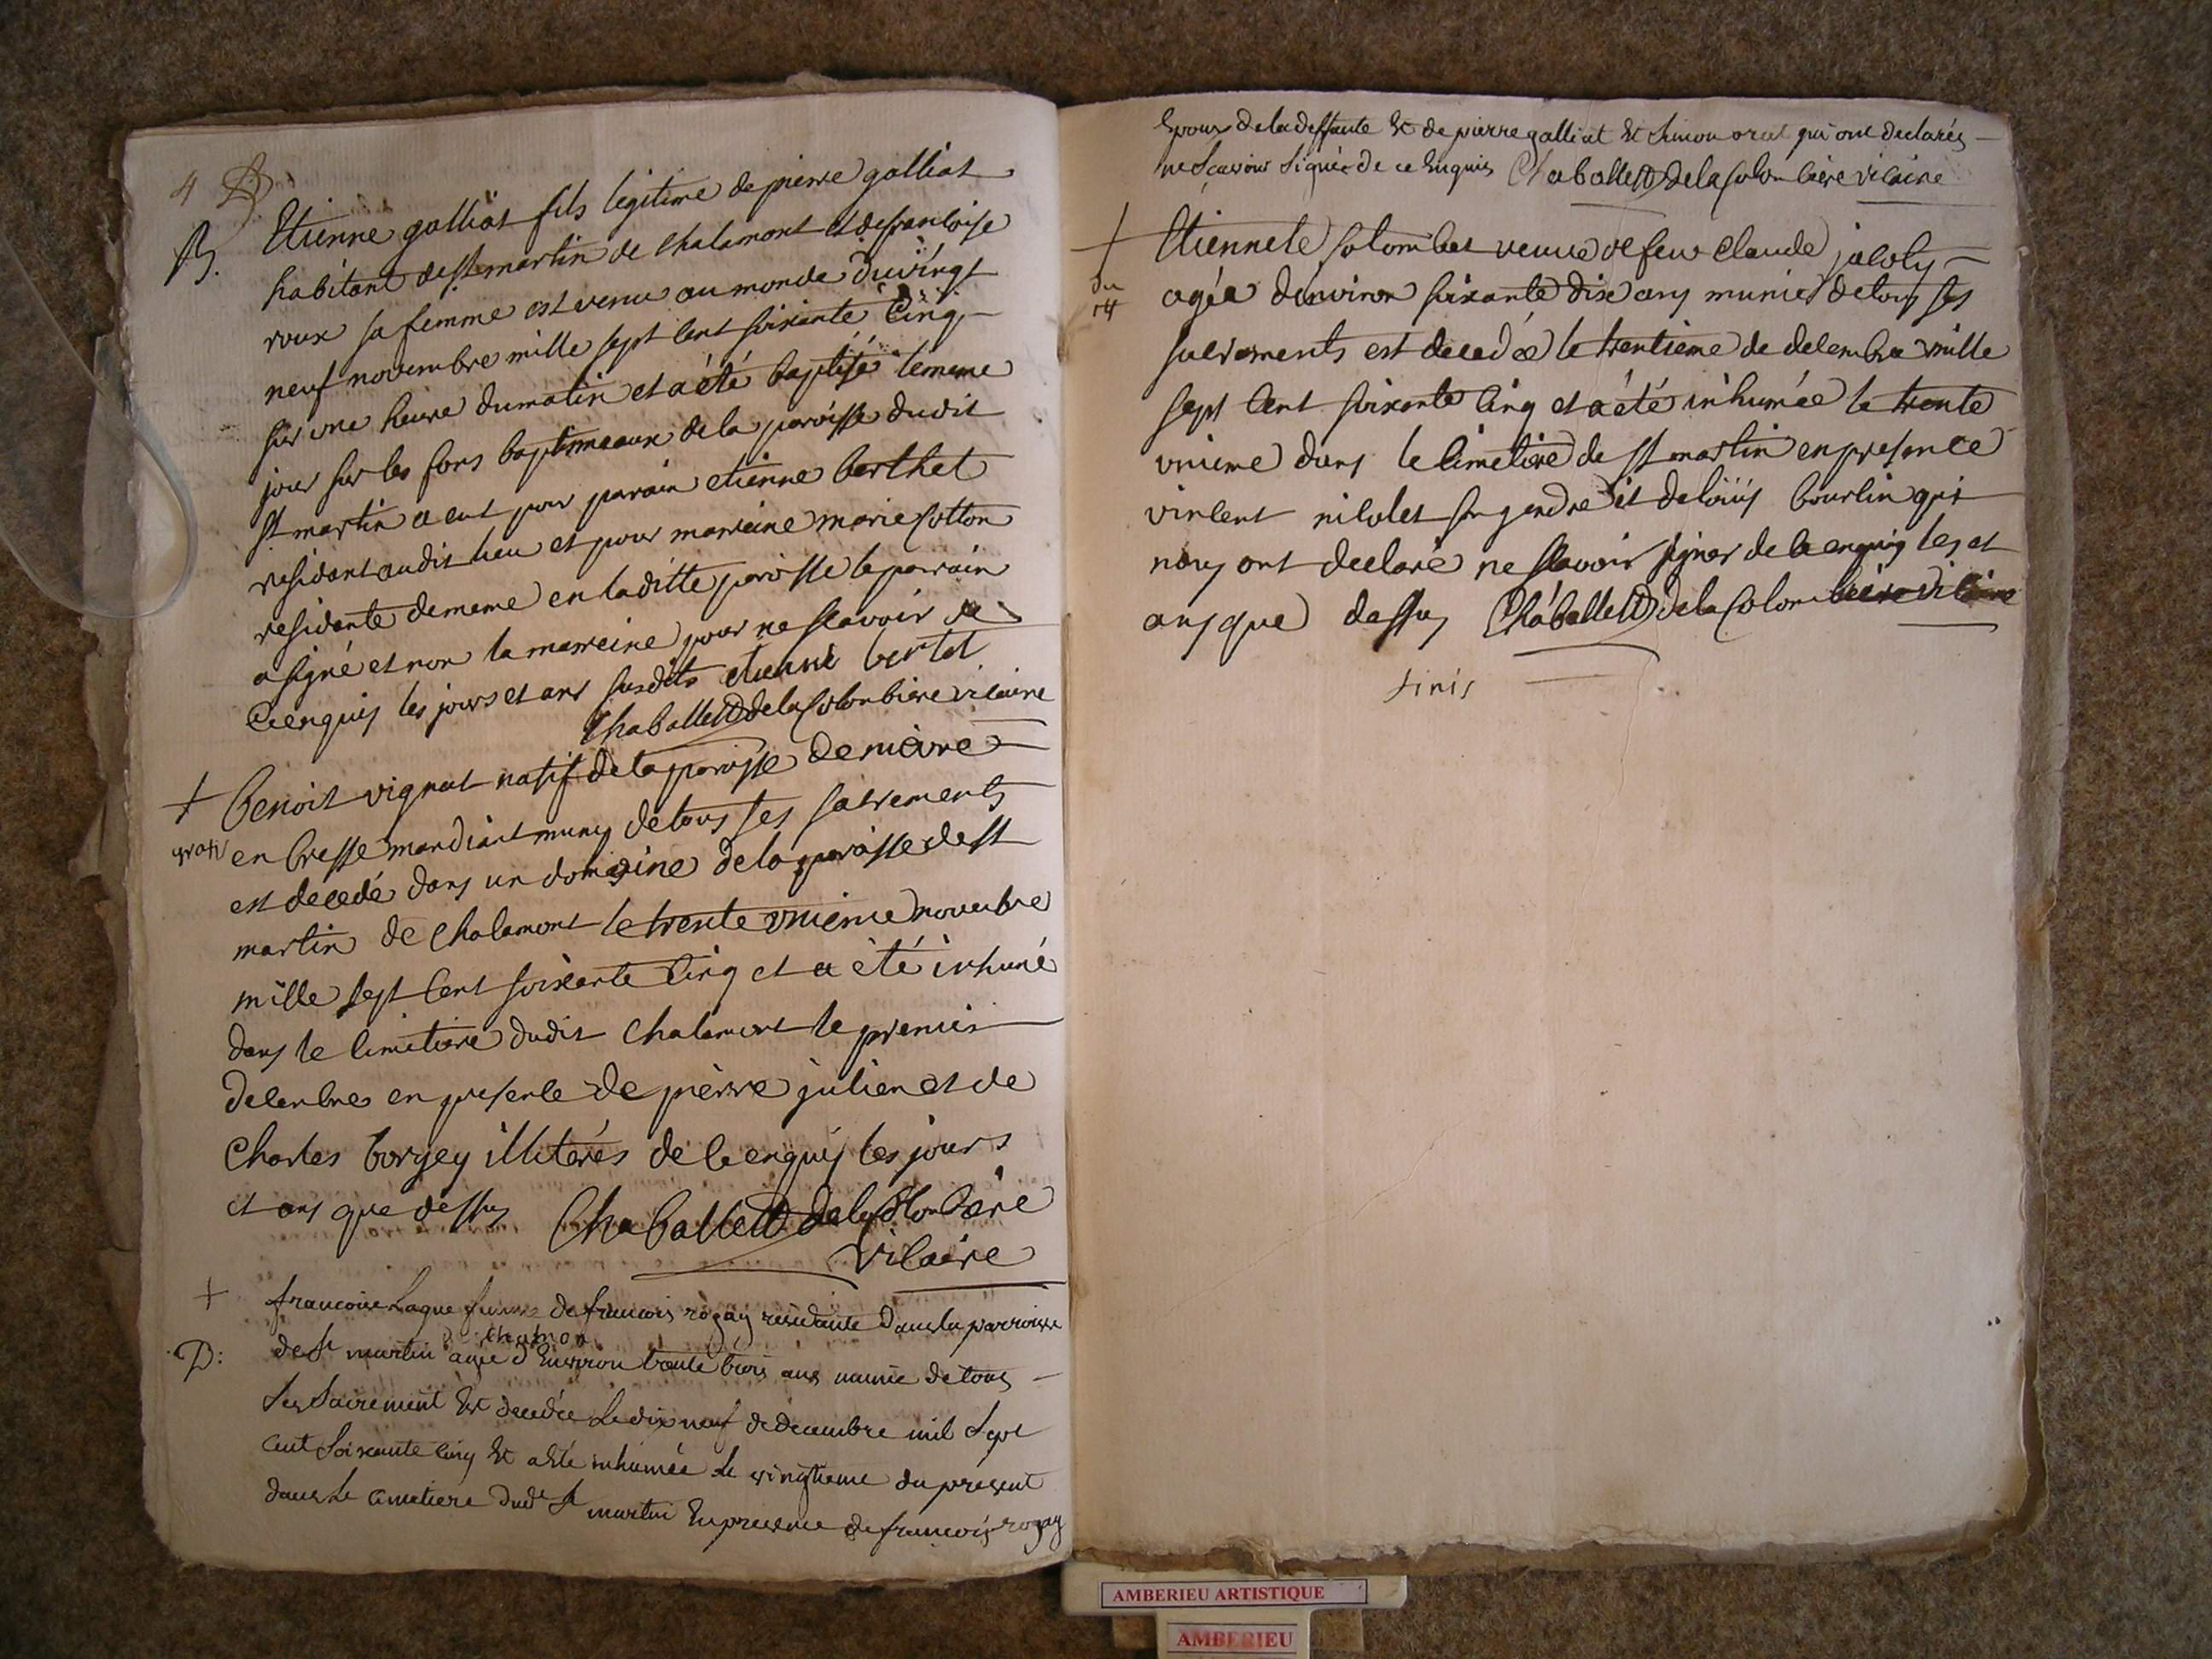 4
B.
Etienne galliat fils legitime de pierre galliat
habitant de st martin de chalamont et de francoise
roux sa femme est venu au monde du vingt
neuf novembre mille sept cent soixante cinq
sur une heure du matin et a été baptisé le meme
jour sur les fons baptismeaux de la paroisse dudit
st martin a eut pour parain etienne berthet
residant audit lieu et pour marreine marie cotton
residante de meme en laditte paroisse le parrain
a signé et non la marreine pour ne scavoir de
ce enquis les jours et ans susdits etienne bertet
Chaballet de la Colombiere vicaire
+ Benoit vignat natif de la paroisse de
gratis en bresse mandiant muny de tous ses sacrements
est decedé dans un domaine de la paroisse de st
martin de chalamont le trente unieme novembre
mille sept cent soixante cinq et a été inhumé
dans le cimetiere dudit chalamont le premier
decembre en presence de pierre julien et de
Charles borgey illiterés de ce enquis les jours
et ans que dessus Chaballet de la Colombiere
vicaire
+ francoise femme de francois rogay residante dans la parroisse
D: de st martin agée d'Environ trente trois ans munie de tous
ses sacrement Est decedée Le dix neuf de decembre mil sept
cent soixante cinq Et a Eté inhumée Le vingtieme du present
dans Le cimetiere dud st martin En presence de francois rogay
Epoux de la deffunte Et de pierre galliat Et simon qui ont declarés
ne scavoir signer de ce Enquis Chaballet de la Colombiere vicaire
+ Etiennete Colombet veuve de feu claude jacoty
du agée d'environ soixante dix ans munie de tous ses
sacrements est decedée le trentieme de decembre mille
sept cent soixante cinq et a été inhumée le trente
unieme dans le cimetiere de st martin en presence
vincent nicolet son gendre et de loüis bourlin qui
nous ont declaré ne scavoir signer de ce enquis les et
ans que dessus Chaballet de la Colombiere vicaire
finis
AMBERIEU ARTISTIQUE
AMBERIEU